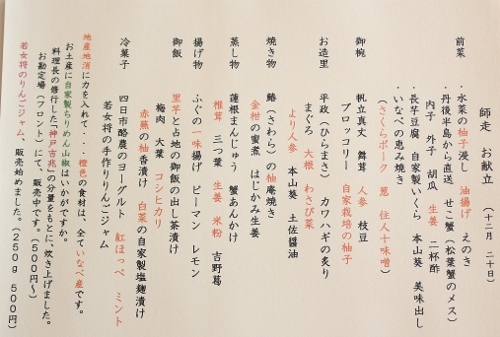 師走　お献立　（十二月　二十日）
前菜　水菜の柚子浸し　油揚げ　えのき
・丹後半島から直送　せこ蟹（松葉蟹のメス）
内子　外子　胡瓜　生姜　二杯酢
・長芋豆腐　自家製いくら　本山葵　美味出し
・いなべの恵み焼き
（さくらポーク　葱　住人十味噌）
御椀　帆立真丈　舞茸　人参　枝豆
ブロッコリー　自家栽培の柚子
お造里　平政（ひらまさ）　カワハギの炙り
まぐろ　大根　わさび菜
より人参　本山葵　土佐醤油
焼き物　鰆（さわら）の柚庵焼き
金柑の蜜煮　はじかみ生姜
蒸し物　蓮根まんじゅう　蟹あんかけ
椎茸　三つ葉　生姜　米粉　吉野葛
揚げ物　ふぐの一味揚げ　ピーマン　レモン
御飯　里芋と占地の御飯の出し茶漬け
梅肉　大葉　コシヒカリ
赤蕪の柚香漬け　白菜の自家製塩麹漬け
冷菓子　四日市酪農のヨーグルト　紅ほっぺ　ミント
若女将の手作りりんごジャム
地産地消に力を入れて・・・橙色の食材は、全ていなべ産です。
お土産に自家製ちりめん山椒はいかがですか。
料理長の修行した「神戸吉兆」の分量をもとに、炊き上げました。
お勘定場（フロント）にて、販売中です。（５００円～）
若女将のりんごジャム、販売始めました。（２５０ｇ　５００円）